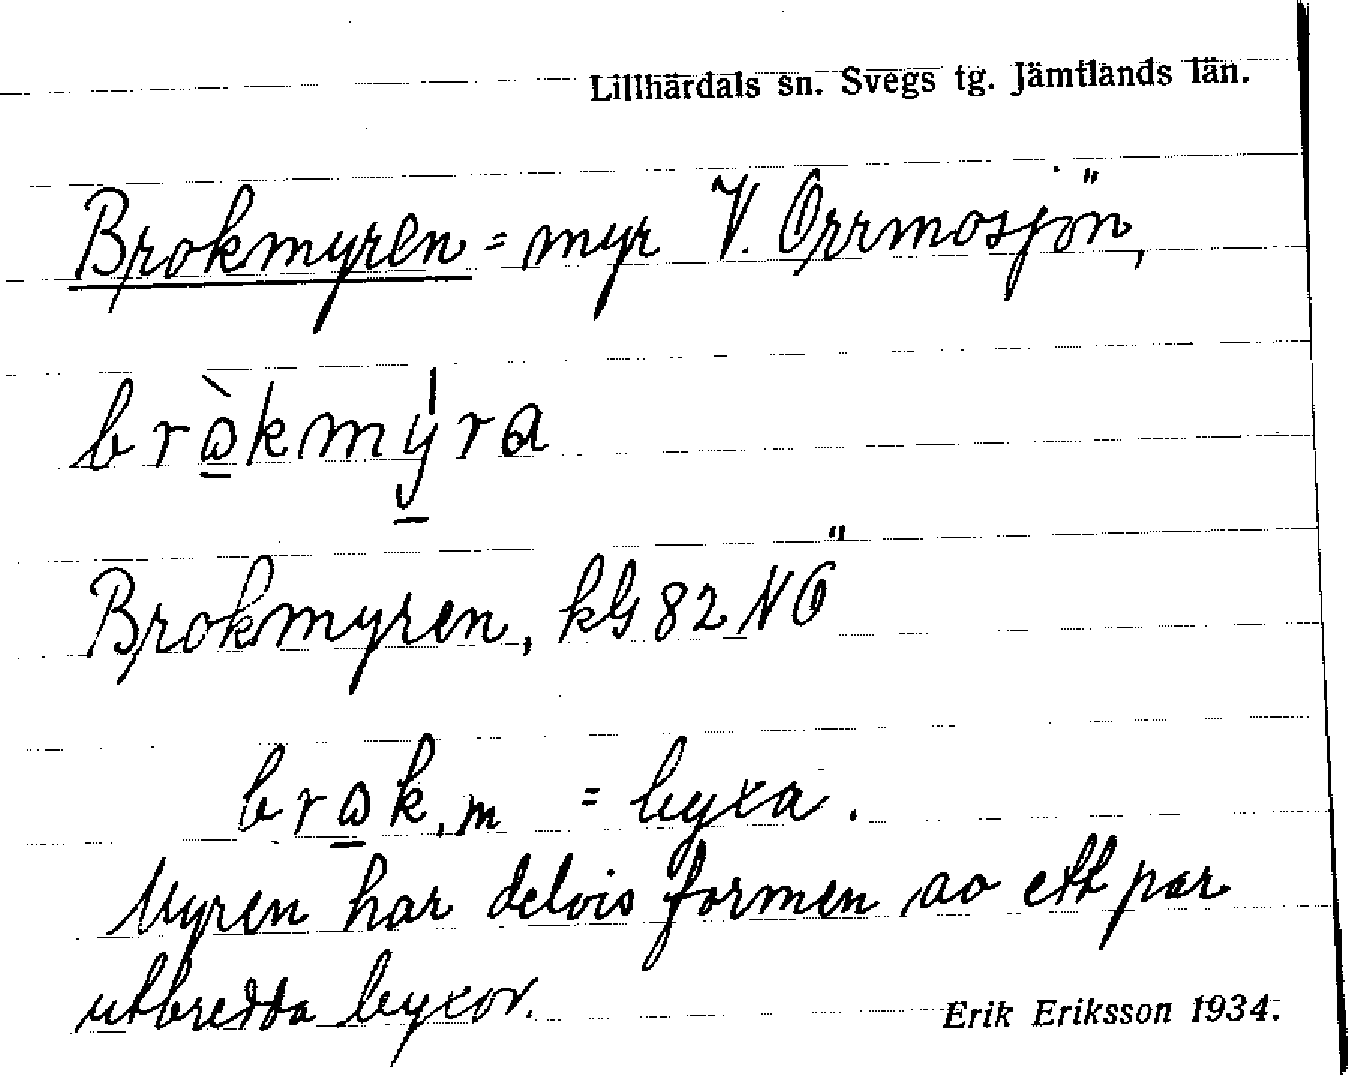 Lillhärdals sn. Svegs tg. Jämtlands län.
Brokmyren = myr V. Orrmosjön,
bròkmýra
Brokmyren, kG 82 NÖ
brok, m = byxa.
Myren har delvis formen av ett par
utbredda byxor.
Erik Eriksson 1934.